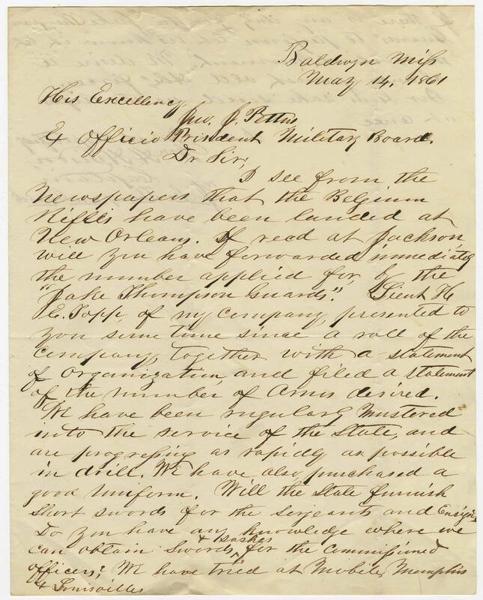 Baldwyn Miss
May 14, 1861
His Excellency
Jno. J. Pettus
Ex Officio President Military Board.
Dr Sir,
I see from the
Newspapers that the Belgium
Rifles have been landed at
New Orleans. If recd at Jackson
will you have forwarded immediately
the number applied for, by the
"Jake Thompson Guards". Lieut H
C. Topp of my company presented to
you some time since a roll of the
company, together with a statement
of organization, and filed a statement
of the number of Arms desired.
We have been regularly mustered
into the service of the State, and
are progressing as rapidly as possible
in drill, We have also purchased a
good Uniform. Will the State furnish
short swords for the Sergeants and Ensign,
Do you have any knowledge where we
can obtain Swords, & Sashes for the Commissioned
officers; We have tried at Mobile, Memphis
& Louisville